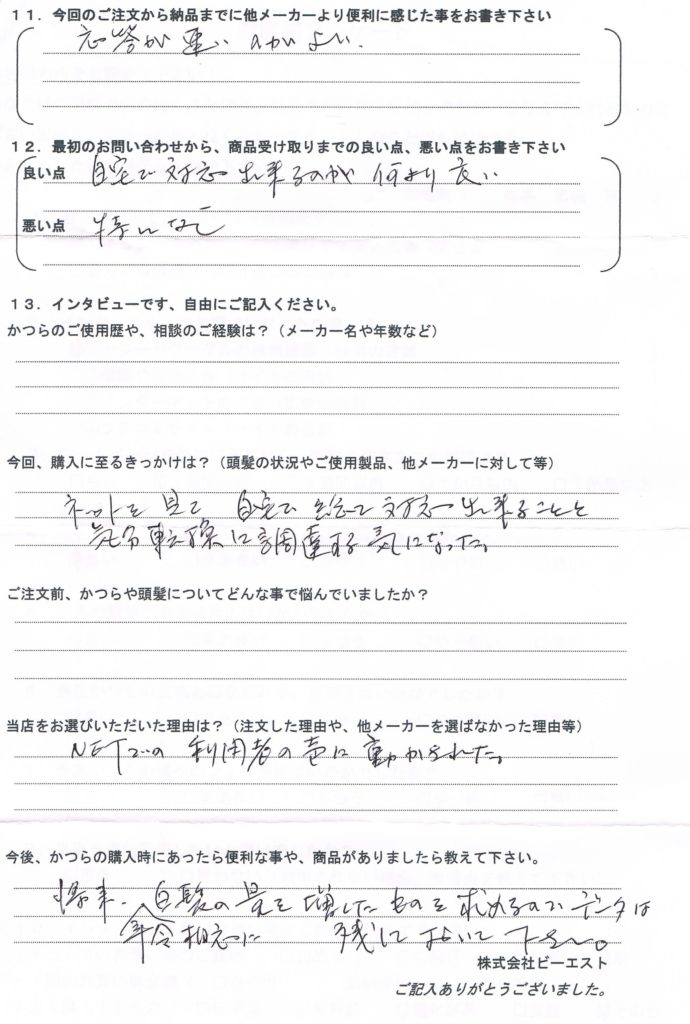 11．今回のご注文から納品までに他メーカーより便利に感じた事をお書き下さい
応答が速いのがよい．
12．最初のお問い合わせから、商品受け取りまでの良い点、悪い点をお書き下さい
良い点 自宅で対応出来るのが何より良い
悪い点 特になし
13．インタビューです、自由にご記入ください。
かつらのご使用歴や、相談のご経験は？（メーカー名や年数など）
今回、購入に至るきっかけは？（頭髪の状況やご使用製品、他メーカーに対して等）
ネットを見て 自宅で総て対応出来ることと
気分転換に調達する気になった。
ご注文前、かつらや頭髪についてどんな事で悩んでいましたか？
当店をお選びいただいた理由は？（注文した理由や、他メーカーを選ばなかった理由等）
NETでの利用者の声に動かされた。
今後、かつらの購入時にあったら便利な事や、商品がありましたら教えて下さい。
将来、白髪の量を増したものを求めるのでデータは
年令相応に 残しておいて下さい。
株式会社ビーエスト
ご記入ありがとうございました。